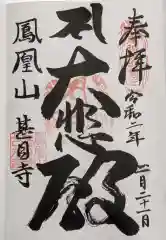 奉拝
令和二年
二月二十一日
大悲殿
鳳凰山
甚目寺